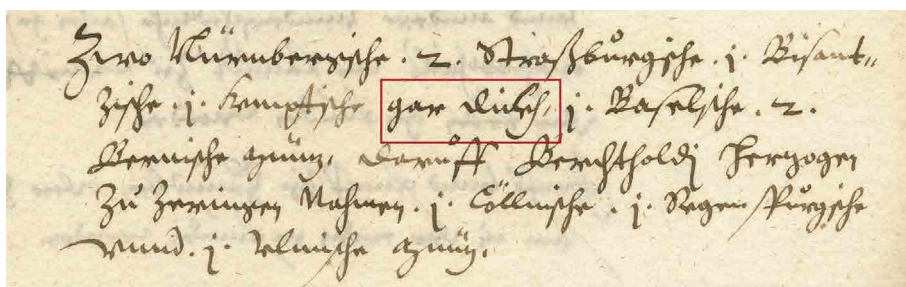 Zwo Nürnbergische . 2. Straßburgische . j. Bisant=
zische . j. Kemptische gar j. Baselsche . 2.
Bernische müntz, daruff Berchtholdj Hertzogen
Zu Zeringen Nahmen . j. Cöllnische . j. Regenspurgische
vnnd . j. Vlmische müntz.